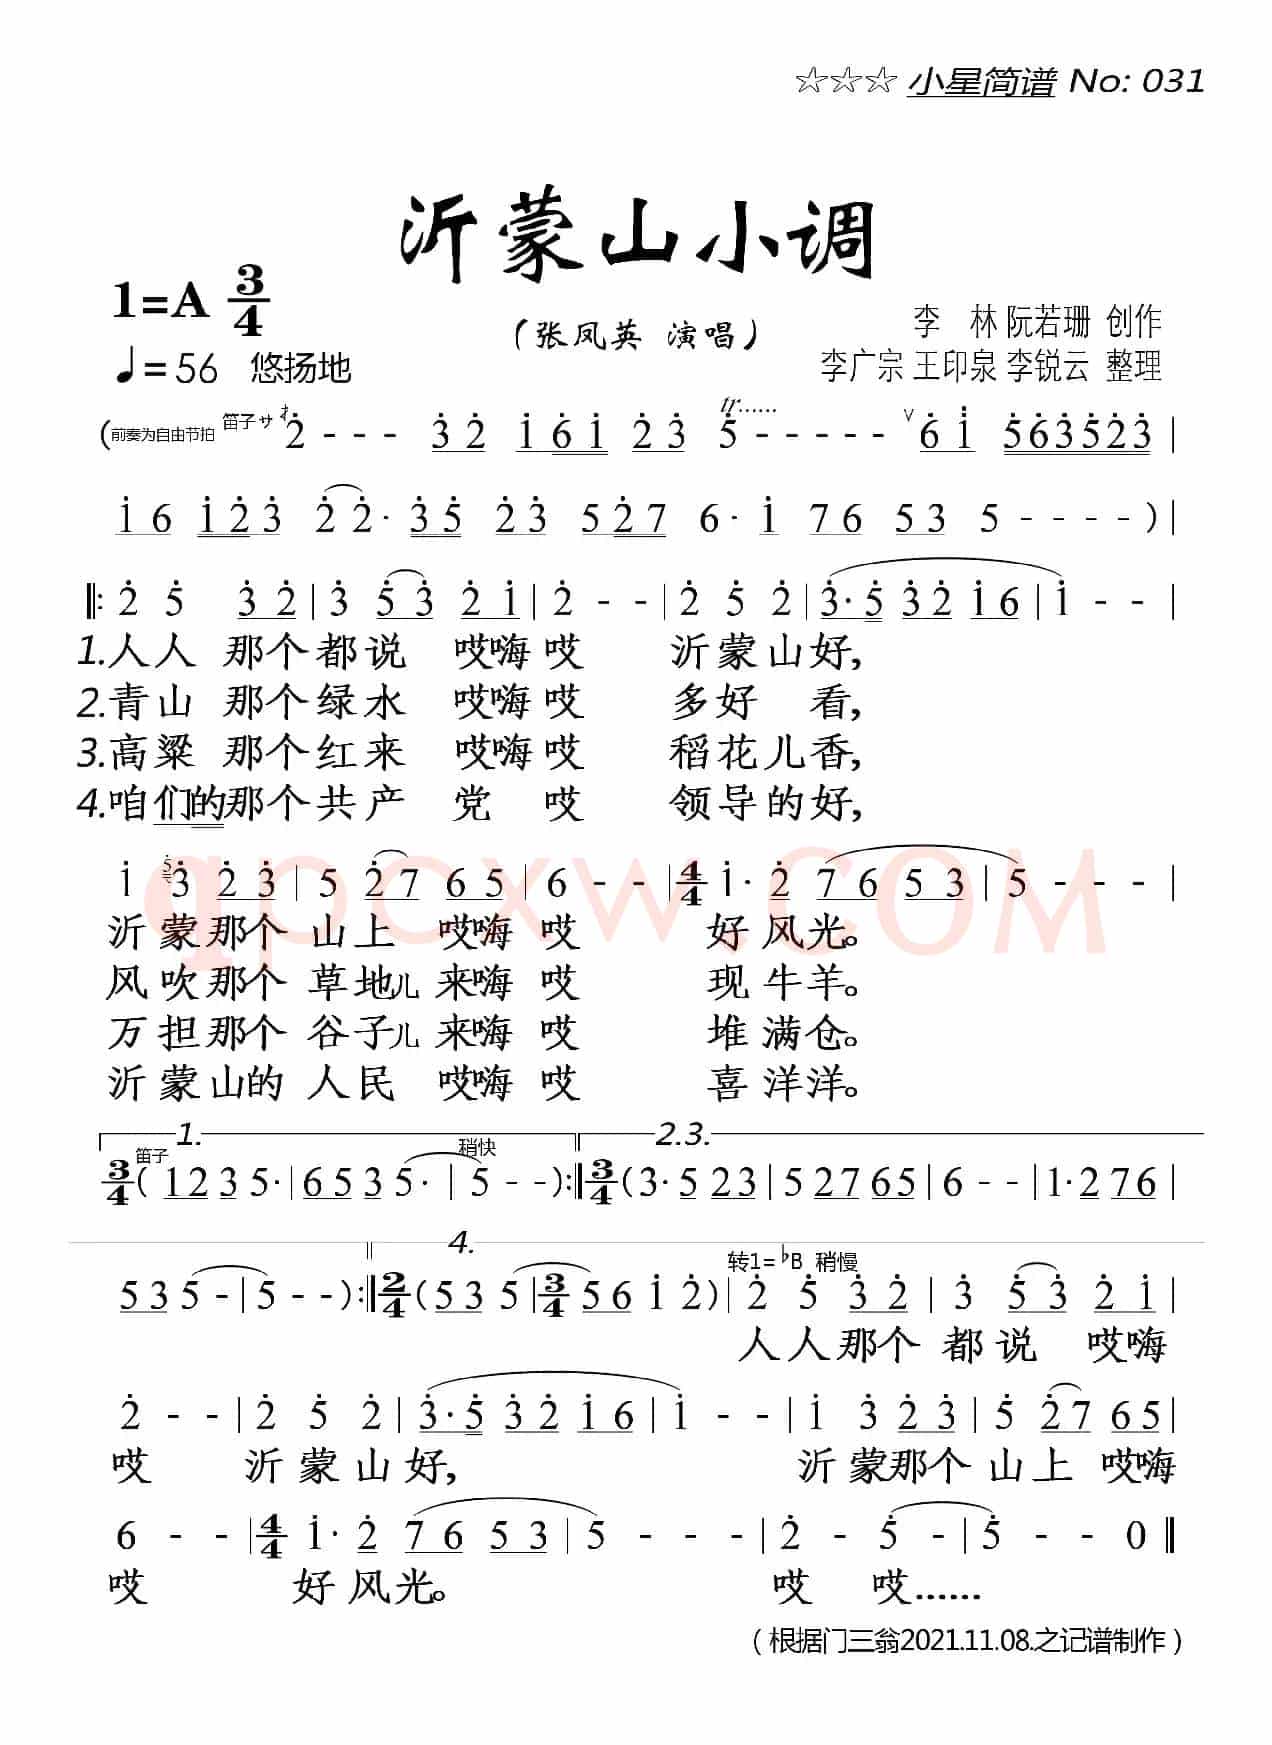 ☆☆☆ 小星简谱 No: 031
沂蒙山小调
1=A 3/4
(张凤英 演唱)
李 林 阮若珊 创作
♩=56 悠扬地
李广宗 王印泉 李锐云 整理
(前奏为自由节拍 笛子 サ 2̇ - - - 3̇ 2̇ 1̇ 6̇ 1̇ 2̇ 3̇ tr...... 5̇ - - - - - ∨ 6̇ i̇ 5̇ 6̇ 3̇ 5̇ 2̇ 3̇ |
1̇ 6 1̇ 2̇ 3̇ 2̇ 2̇· 3̇ 5̇ 2̇ 3̇ 5 2̇ 7 6· 1̇ 7 6 5 3 5 - - - - ) |
‖: 2̇ 5̇ 3̇ 2̇ | 3̇ 5̇ 3̇ 2̇ 1̇ | 2̇ - - | 2̇ 5̇ 2̇ | 3̇· 5̇ 3̇ 2̇ 1̇ 6 | 1̇ - - |
1.人人 那个都说 哎嗨哎 沂蒙山好,
2.青山 那个绿水 哎嗨哎 多好 看,
3.高粱 那个红来 哎嗨哎 稻花儿香,
4.咱们的那个共产 党 哎 领导的好,
1̇ 5̇ 3̇ 2̇ 3̇ | 5 2̇ 7 6 5 | 6 - - | 4/4 1̇· 2̇ 7 6 5 3 | 5 - - - |
qpcxw.com
沂蒙那个 山上 哎嗨 哎 好风光。
风吹那个 草地儿 来嗨 哎 现牛羊。
万担那个 谷子儿 来嗨 哎 堆满仓。
沂蒙山的 人民 哎嗨 哎 喜洋洋。
1. 2.3.
笛子 稍快
3/4 ( 1 2 3 5· | 6 5 3 5· | 5 - - ) :‖ 3/4 ( 3· 5 2 3 | 5 2 7 6 5 | 6 - - | 1· 2 7 6 |
4.
转1=♭B 稍慢
5 3 5 - | 5 - - ) :‖ 2/4 ( 5 3 5 | 3/4 5 6 1̇ 2̇ ) | 2̇ 5̇ 3̇ 2̇ | 3̇ 5̇ 3̇ 2̇ 1̇ |
人人那个 都说 哎嗨
2̇ - - | 2̇ 5̇ 2̇ | 3̇· 5̇ 3̇ 2̇ 1̇ 6 | 1̇ - - | 1̇ 3̇ 2̇ 3̇ | 5̇ 2̇ 7 6 5 |
哎 沂蒙山好, 沂蒙那个山上 哎嗨
6 - - | 4/4 1̇· 2̇ 7 6 5 3 | 5 - - - | 2̇ - 5̇ - | 5̇ - - 0 ‖
哎 好风光。 哎 哎......
(根据门三翁2021.11.08.之记谱制作)